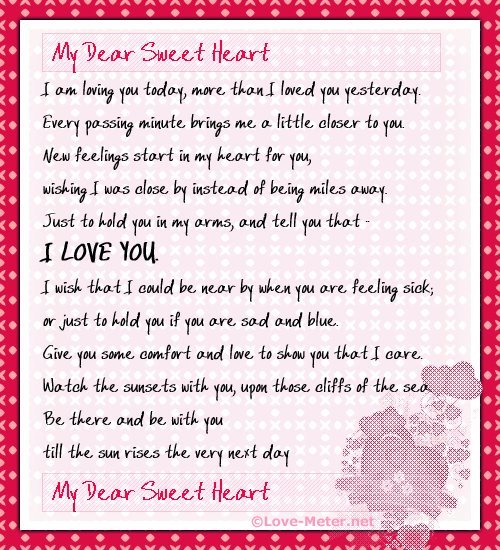 My Dear Sweet Heart
I am loving you today, more than I loved you yesterday.
Every passing minute brings me a little closer to you.
New feelings start in my heart for you,
wishing I was close by instead of being miles away.
Just to hold you in my arms, and tell you that -
I LOVE YOU.
I wish that I could be near by when you are feeling sick;
or just to hold you if you are sad and blue.
Give you some comfort and love to show you that I care.
Watch the sunsets with you, upon those cliffs of the sea.
Be there and be with you
till the sun rises the very next day
My Dear Sweet Heart
©Love-Meter.net